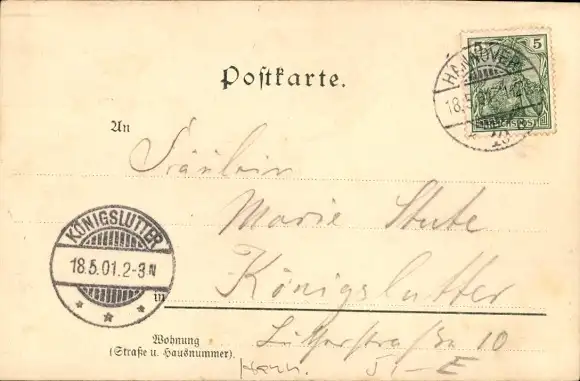 Postkarte.
5
HANNOVER
18.5.01
An
Fräulein
Marie Stute
KÖNIGSLUTTER
18.5.01.2-3N
in Königslutter
Wohnung
(Straße u. Hausnummer).
10
5,- E